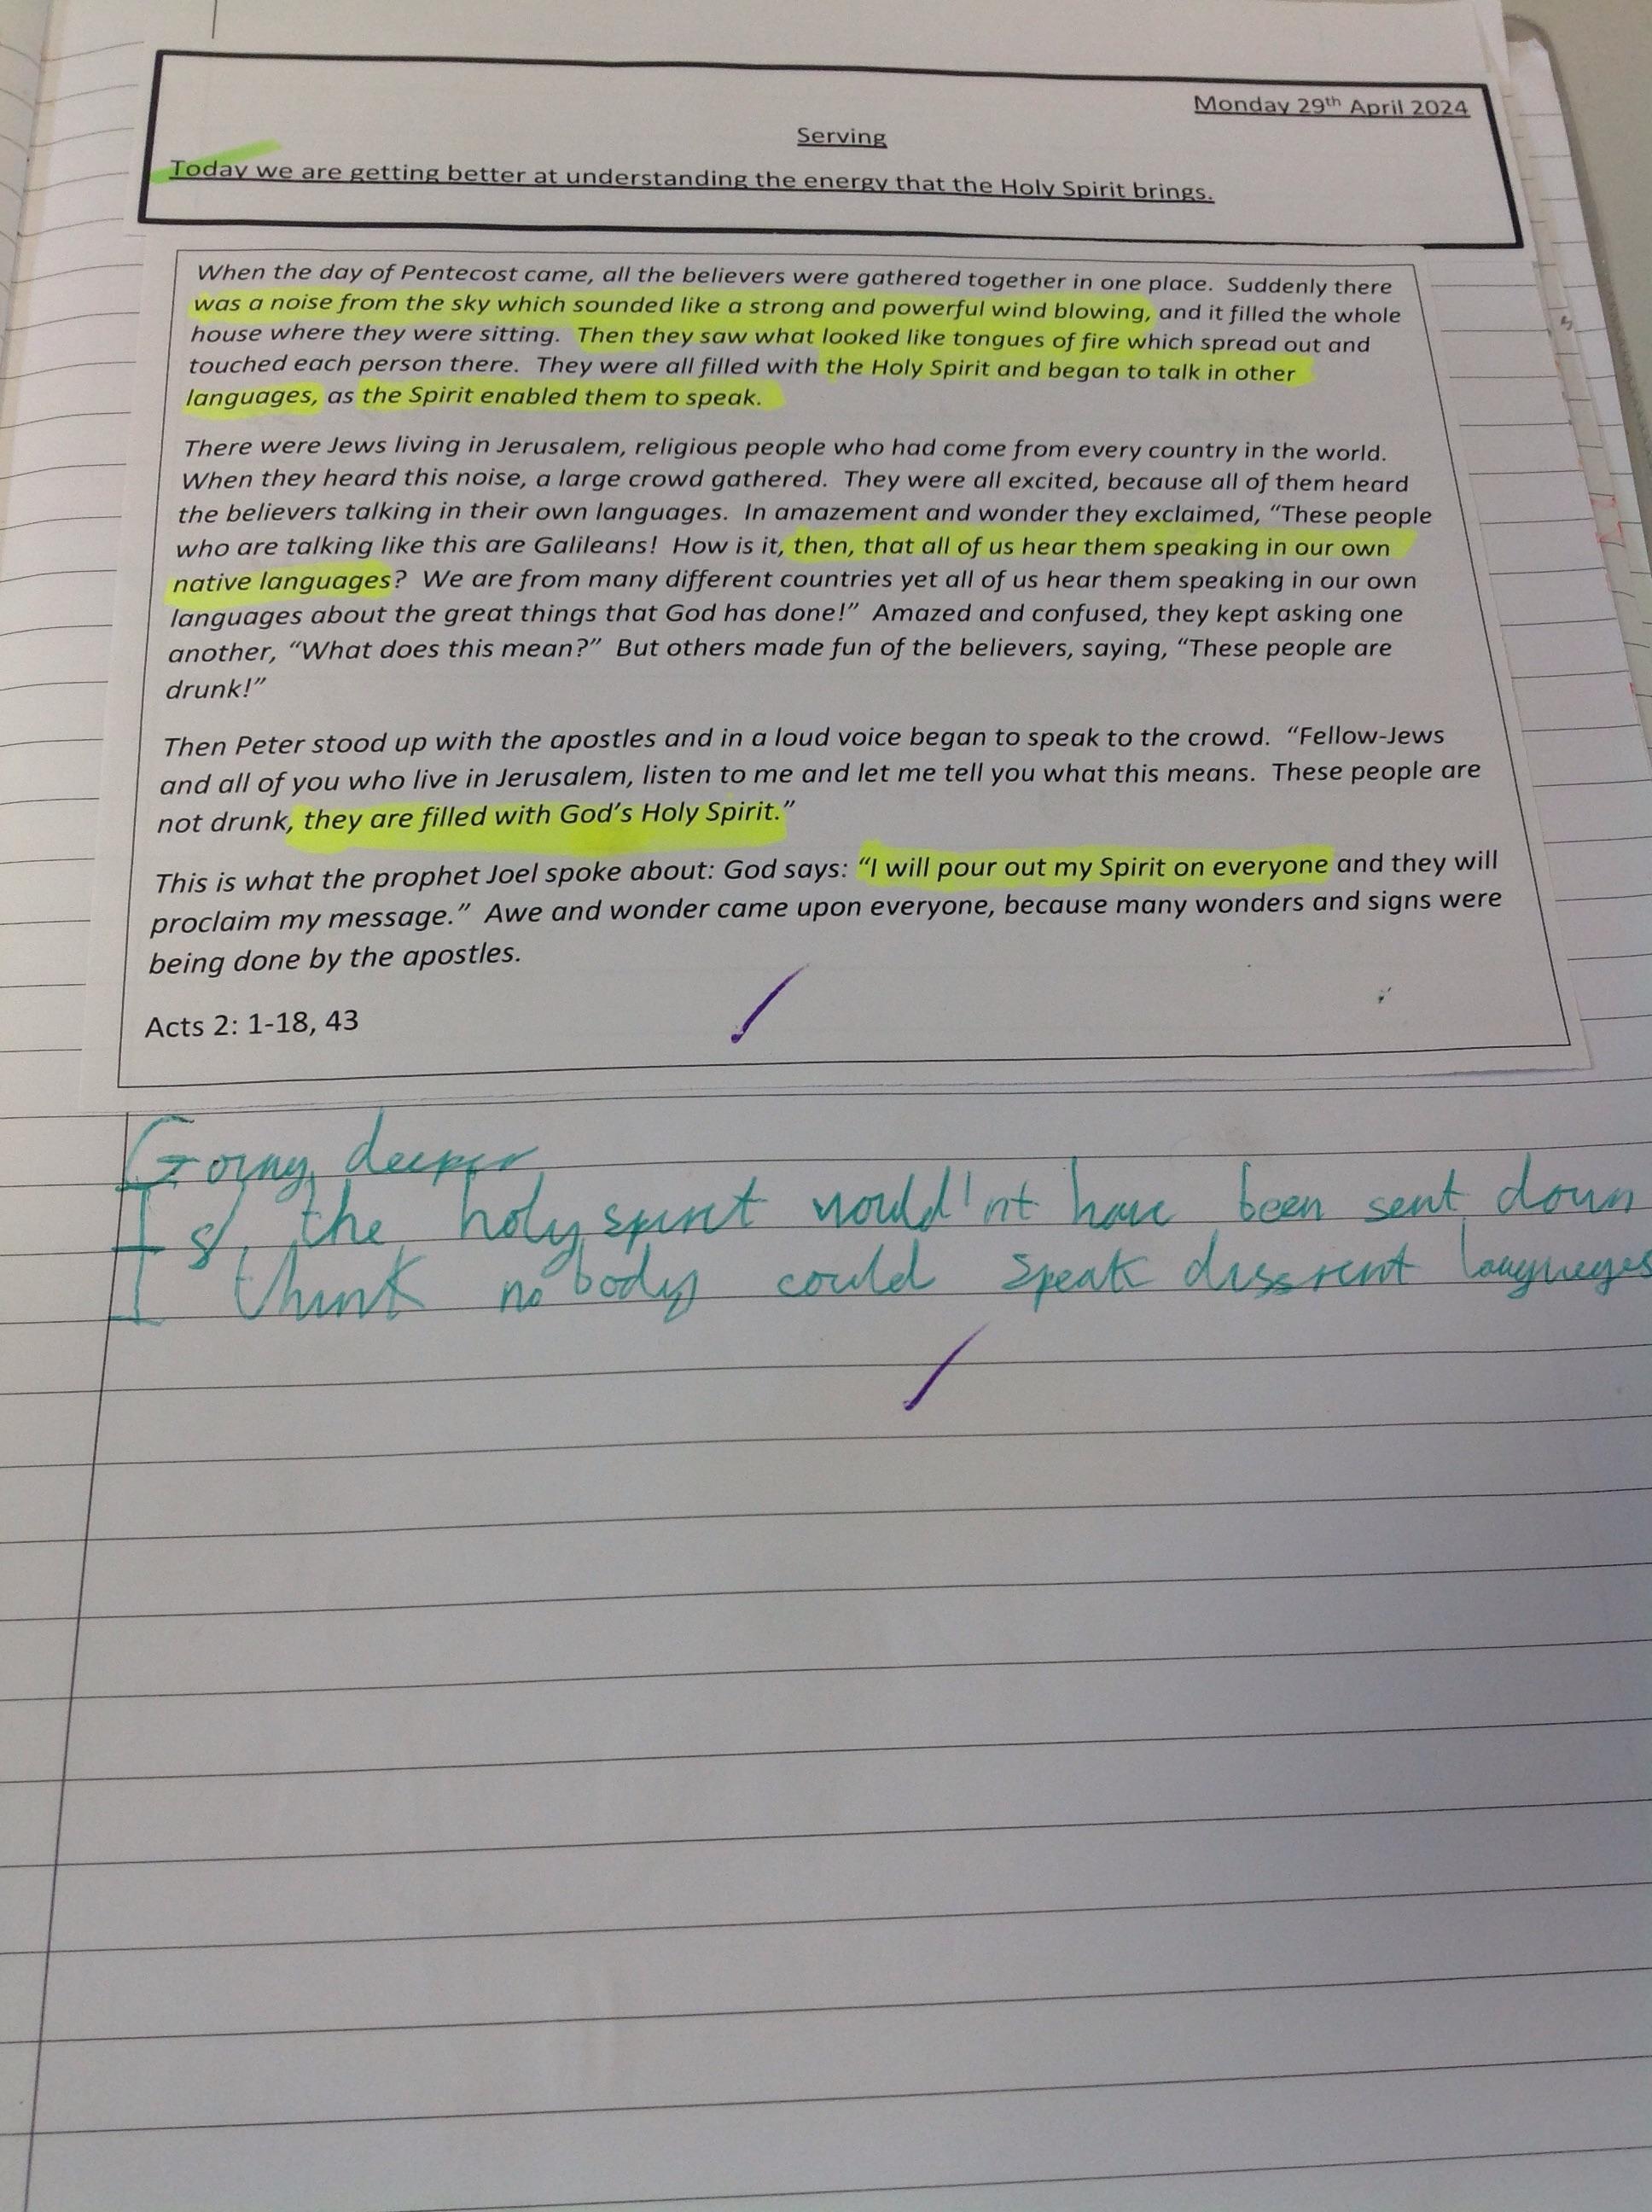 Monday 29th April 2024
Serving
Today we are getting better at understanding the energy that the Holy Spirit brings.
When the day of Pentecost came, all the believers were gathered together in one place. Suddenly there
was a noise from the sky which sounded like a strong and powerful wind blowing, and it filled the whole
house where they were sitting. Then they saw what looked like tongues of fire which spread out and
touched each person there. They were all filled with the Holy Spirit and began to talk in other
languages, as the Spirit enabled them to speak.
There were Jews living in Jerusalem, religious people who had come from every country in the world.
When they heard this noise, a large crowd gathered. They were all excited, because all of them heard
the believers talking in their own languages. In amazement and wonder they exclaimed, “These people
who are talking like this are Galileans! How is it, then, that all of us hear them speaking in our own
native languages? We are from many different countries yet all of us hear them speaking in our own
languages about the great things that God has done!” Amazed and confused, they kept asking one
another, “What does this mean?” But others made fun of the believers, saying, “These people are
drunk!”
Then Peter stood up with the apostles and in a loud voice began to speak to the crowd. “Fellow-Jews
and all of you who live in Jerusalem, listen to me and let me tell you what this means. These people are
not drunk, they are filled with God’s Holy Spirit.”
This is what the prophet Joel spoke about: God says: “I will pour out my Spirit on everyone and they will
proclaim my message.” Awe and wonder came upon everyone, because many wonders and signs were
being done by the apostles.
Acts 2: 1-18, 43
Going deeper
If the holy spirit would'nt have been sent down
I think nobody could speak diffrent langueges